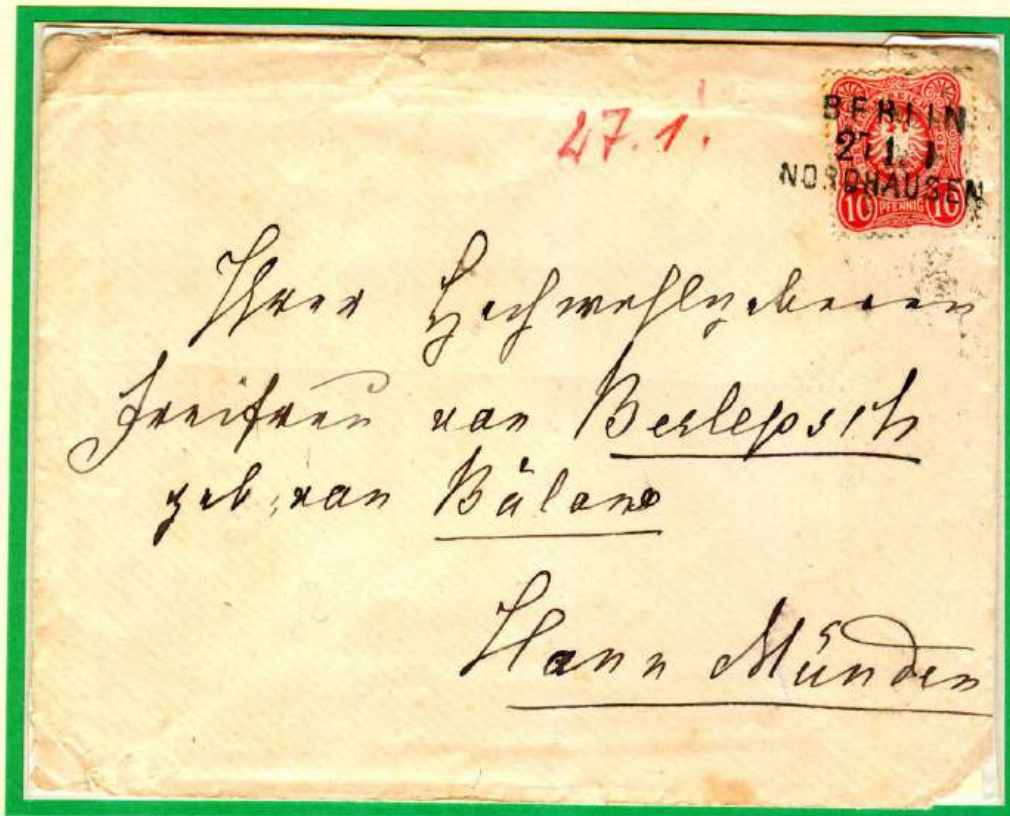 27.1.
BERLIN
27 1 1
NORDHAUSEN
10 PFENNIG 10
Ihrer Hochwohlgeboren
Freifrau von Berlepsch
geb. von Bülow
Hann Münden